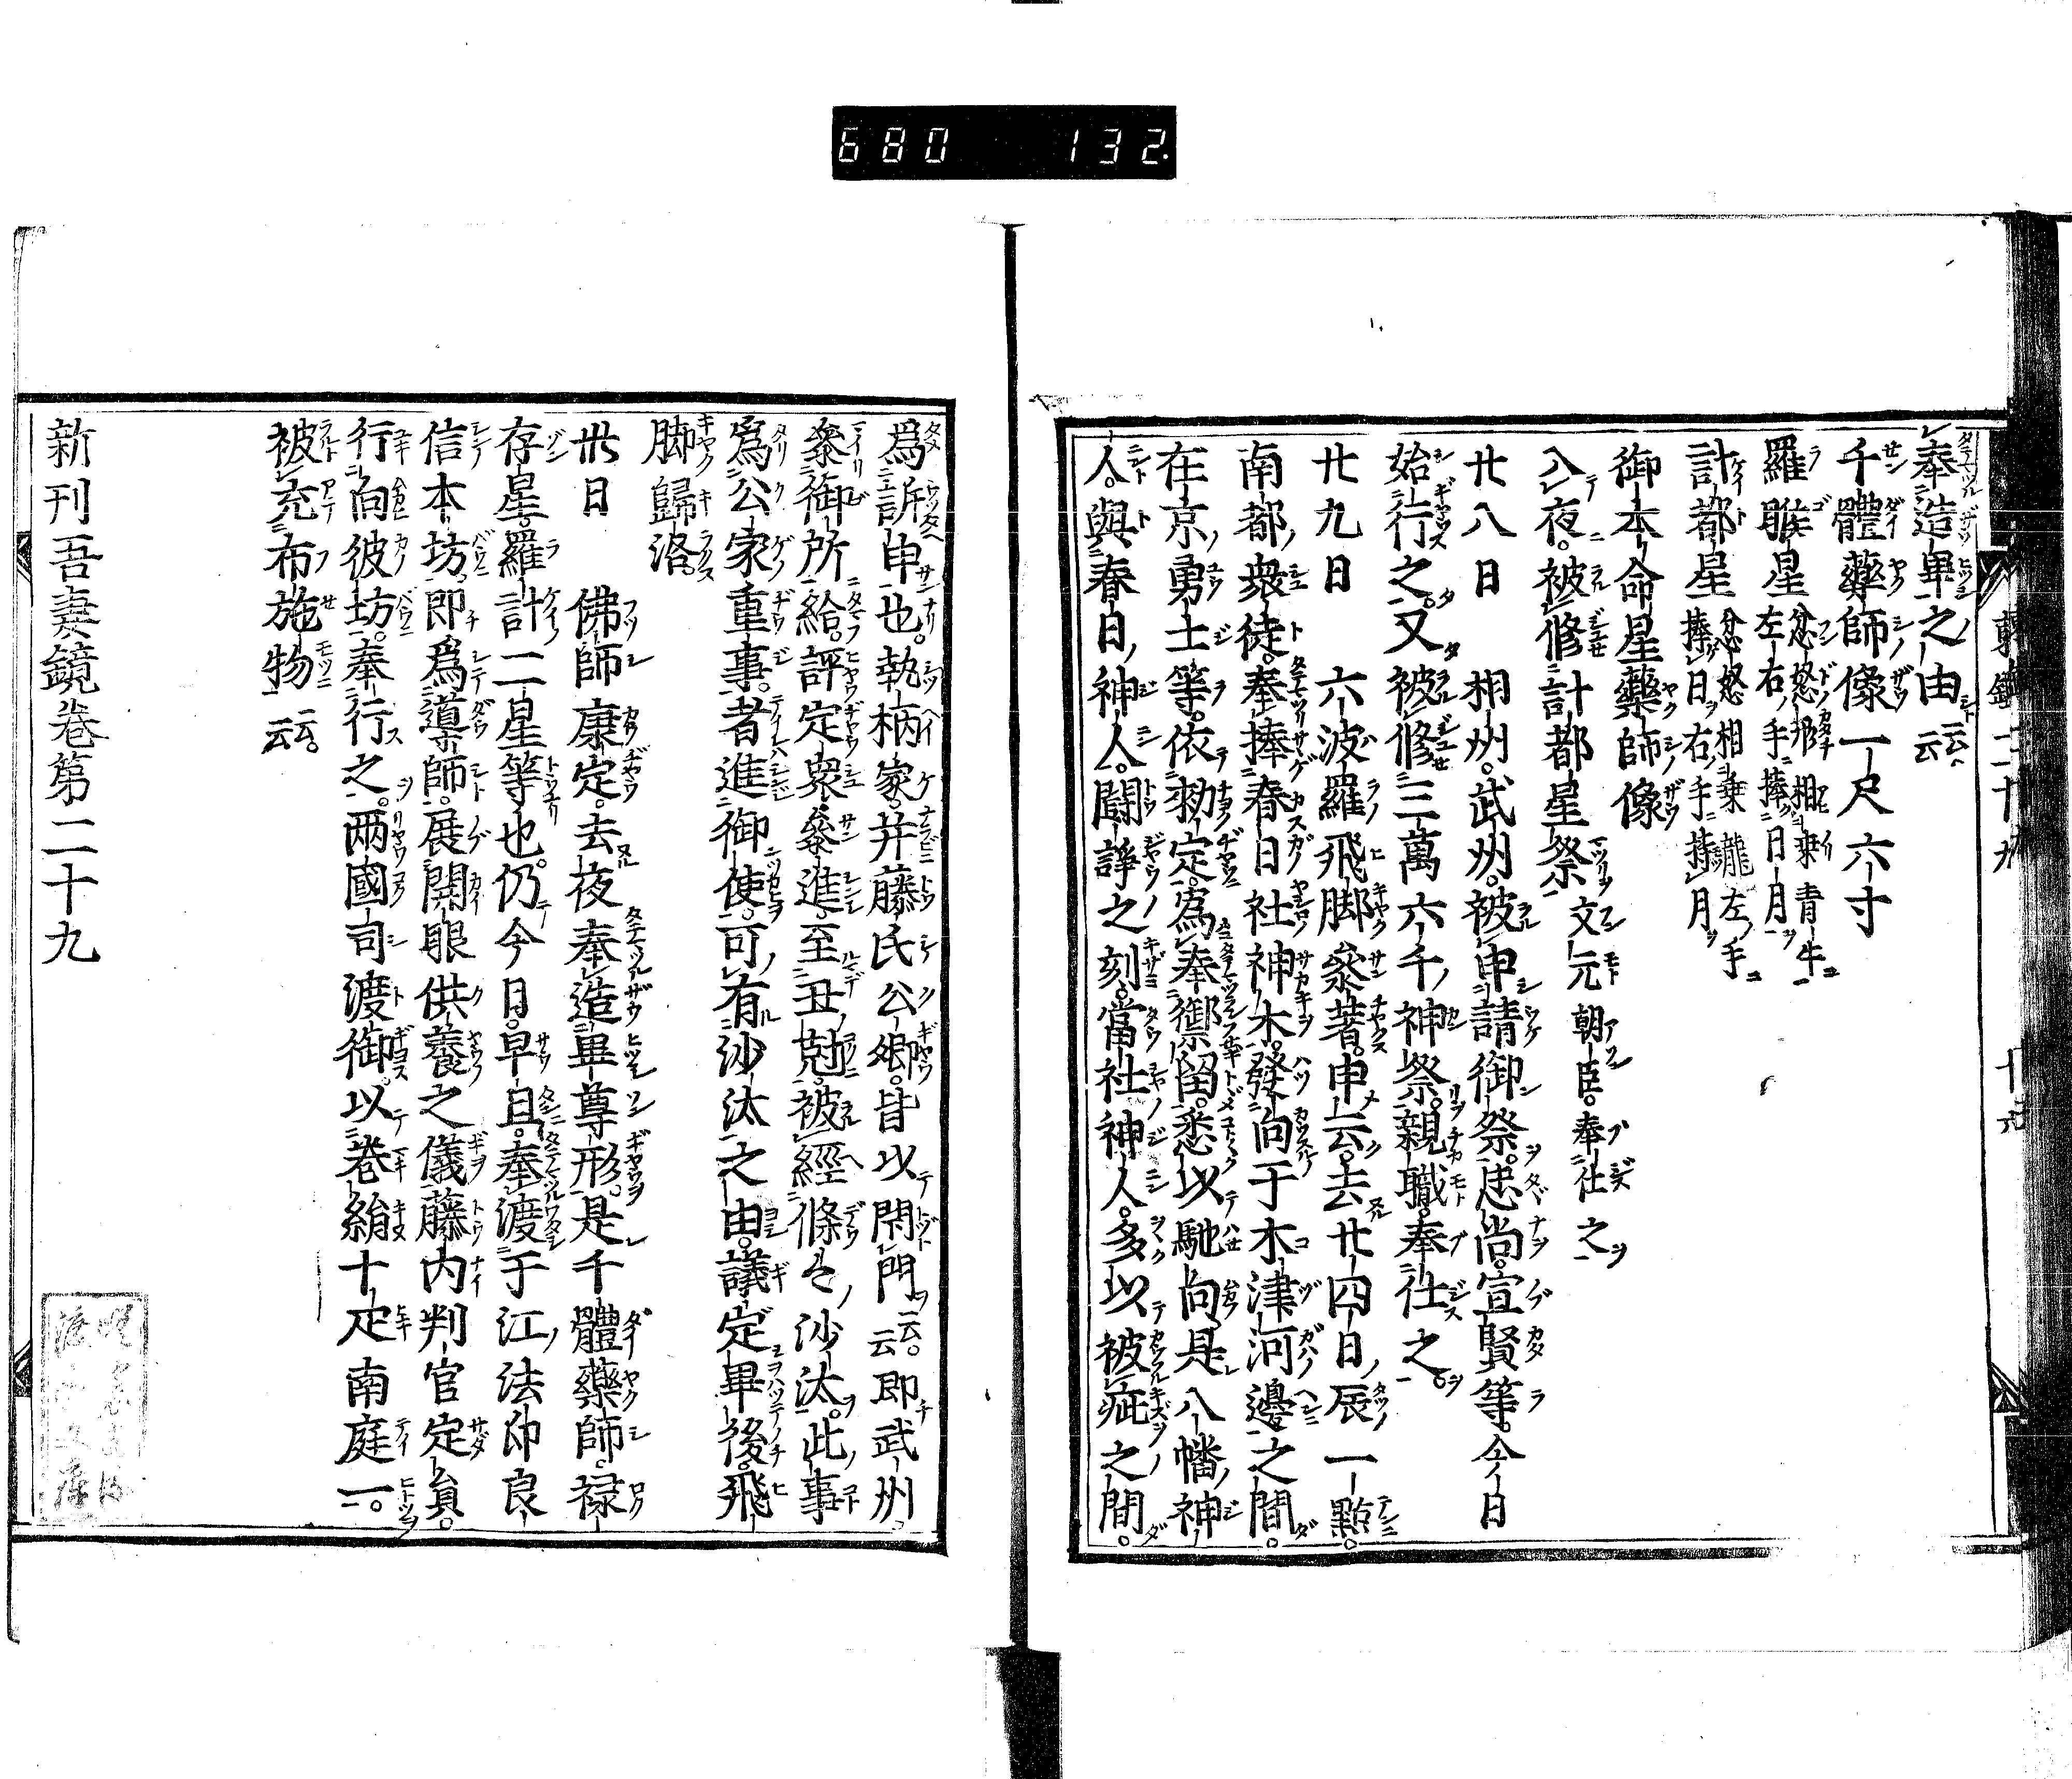 680 132.
奉造畢之由云云
千體藥師像一尺六寸
羅睺星忿怒形相乗青牛左右手捧日月
計都星忿怒相乗瀧左手捧日右手持月
御本命星藥師像
入夜。被修計都星祭文元朝臣。奉仕之
廿八日 相州。武州。被申請御祭。忠尚。宣賢等。今日
始行之。又被修三萬六千神祭。親職。奉仕之。
廿九日 六波羅飛脚參著。申云。去廿四日辰一點。
南都衆徒。奉捧春日社神木。發向于木津河邊之間。
在京勇士等。依勅定。爲奉禦留。悉以馳向。是八幡神
人。與春日神人。鬪諍之刻。當社神人。多以被疵之間。
爲訴申也。執柄家。并藤氏公卿。皆以閇門云云。即武州。
參御所給。評定衆參進。至丑尅。被經條々沙汰。此事
爲公家重事。者進御使。可有沙汰之由。議定畢後。飛
脚歸洛。
卅日 佛師康定。去夜奉造畢尊形。是千體藥師。禄
存星。羅計二星等也。仍今日。早旦。奉渡于江法印良
信本坊。即爲導師。展開眼供養之儀。藤内判官定員。
行向彼坊。奉行之。两國司渡御。以巻絹十疋南庭一。
被充布施物云云。
新刊吾妻鏡卷第二十九